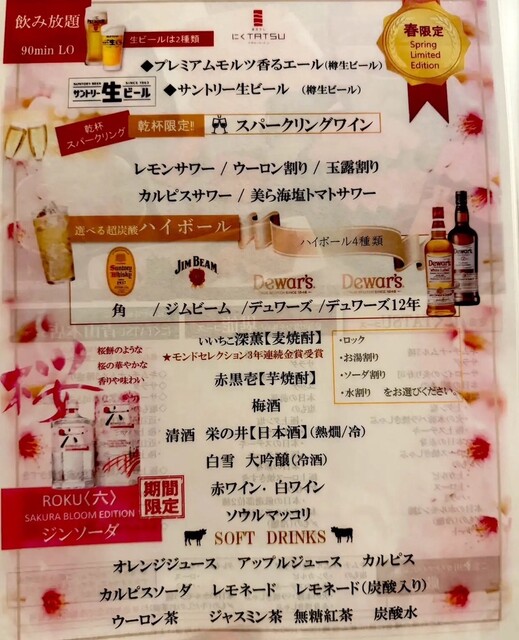 飲み放題
90min LO
生ビールは2種類
にくTATSU
春限定
Spring
Limited
Edition
◆プレミアムモルツ香るエール(樽生ビール)
サントリー生ビール
◆サントリー生ビール (樽生ビール)
乾杯
スパークリング
乾杯限定!! スパークリングワイン
レモンサワー / ウーロン割り / 玉露割り
カルピスサワー / 美ら海塩トマトサワー
選べる超炭酸ハイボール
ハイボール4種類
JIM BEAM
Dewar's
Dewar's
角 / ジムビーム / デュワーズ / デュワーズ12年
いいちこ深薫【麦焼酎】
★モンドセレクション3年連続金賞受賞
赤黒壱【芋焼酎】
梅酒
・ロック
・お湯割り
・ソーダ割り
・水割り をお選びください。
清酒 栄の井【日本酒】(熱燗/冷)
白雪 大吟醸(冷酒)
赤ワイン・白ワイン
ソウルマッコリ
桜餅のような
桜の華やかな
香りや味わい
桜
六
六
ROKU〈六〉
SAKURA BLOOM EDITION
ジンソーダ
期間
限定
SOFT DRINKS
オレンジジュース アップルジュース カルピス
カルピスソーダ レモネード レモネード(炭酸入り)
ウーロン茶 ジャスミン茶 無糖紅茶 炭酸水